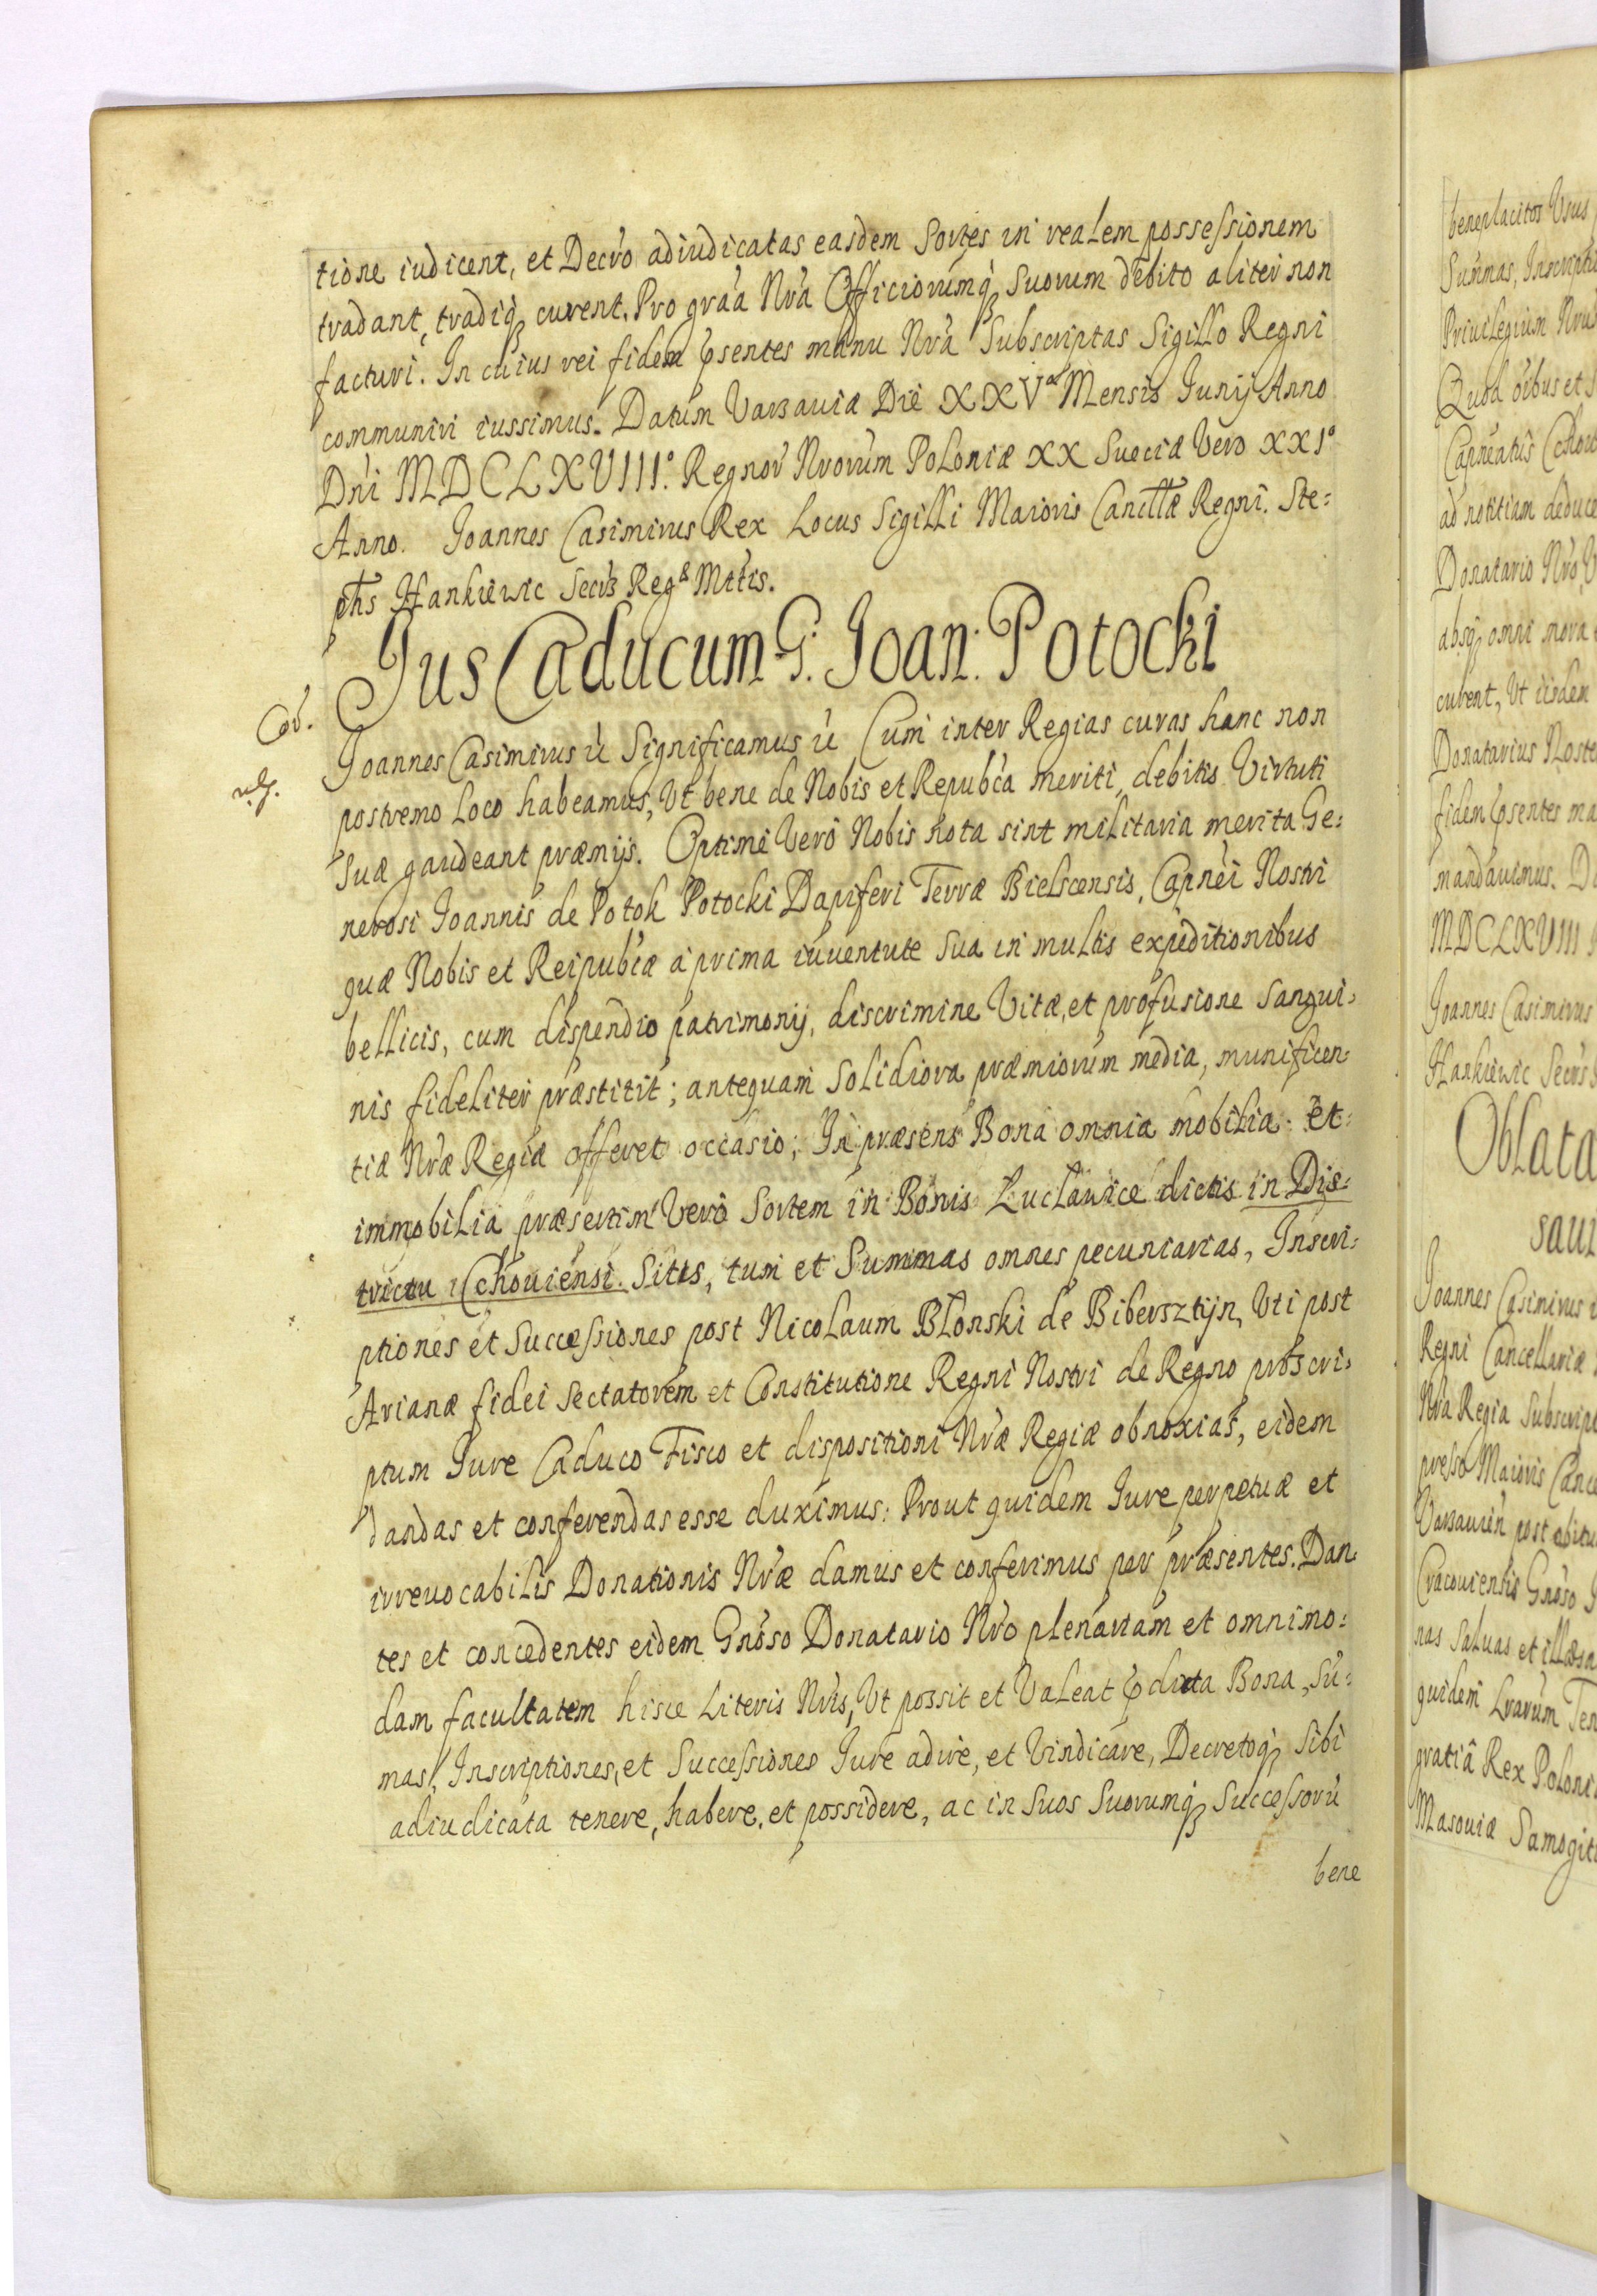 tione iudicent, et Decro adiudicatas easdem Sortes in realem possessionem
tradant, tradiq; curent. Pro graa Nra Officiorumq; Suorum debito aliter non
facturi. In cuius rei fidem psentes manu Nra Subscriptas Sigillo Regni
communiri iussimus. Datum Varsauiæ Die XXVa Mensis Junij Anno
Dni MDCLXVIII° Regnor Nrorum Poloniæ XX Sueciæ Vero XXI°
Anno. Joannes Casimirus Rex Locus Sigilli Maioris Canclæ Regni. Ste=
phs Hankiewic Secrs Reg Mttis.
Jus Caducum G: Joan: Potocki
Joannes Casimirus ic Significamus ic Cum inter Regias curas hanc non
postremo loco habeamus, Ut bene de Nobis et Repubca meriti, debitis Virtuti
Suæ gaudeant præmijs. Optime Vero Nobis nota sint militaria merita Ge=
nerosi Joannis de Potok Potocki Dapiferi Terræ Bielscensis, Capnei Nostri
quæ Nobis et Reipubcæ a prima iuuentute Sua in multis expeditionibus
bellicis, cum dispendio patrimonij, discrimine Vitæ, et profusione Sangui=
nis fideliter præstitit; antequam Solidiora præmiorum media, munificen=
tiæ Nræ Regiæ offeret occasio; In præsens Bona omnia mobilia et
immobilia præsertim Vero Sortem in Bonis Luclawice dictis in Dis=
trictu Cchouiensi Sitis, tum et Summas omnes pecuniarias, Inscri=
ptiones et Successiones post Nicolaum Blonski de Bibersztijn, Uti post
Arianæ fidei Sectatorem et Constitutione Regni Nostri de Regno proscri=
ptum Jure Caduco Fisco et dispositioni Nræ Regiæ obnoxias, eidem
dandas et conferendas esse duximus: Prout quidem Jure perpetuæ et
irreuocabilis Donationis Nræ damus et conferimus per præsentes. Dan=
tes et concedentes eidem Gnoso Donatario Nro plenariam et omnimo=
dam facultatem hisce Literis Nris, Ut possit et Valeat pdicta Bona, Su=
mas, Inscriptiones, et Successiones Jure adire, et Vindicare, Decretoq; Sibi
adiudicata tenere, habere, et possidere, ac in Suos Suorumq; Successoru
bene
beneplacitos Usus
Privilegium
Quod oibus et
ad notitiam deduce
Donatario Nro
absq; omni mora
curent, Ut iisdem
Donatarius Noste
fidem psentes ma
mandauimus. D
MDCLXVIII
Joannes Casimirus
Hankiewic Secrs
Oblata
Joannes Casimirus
Regni Cancellariæ
Nra Regia Subscript
presso Maioris Canc
Varsauien post obitu
Cracouiensis Gnoso
nas Saluas et illæsa
quidem Lrarum Ten
gratiâ Rex Poloni
Masouiæ Samogit